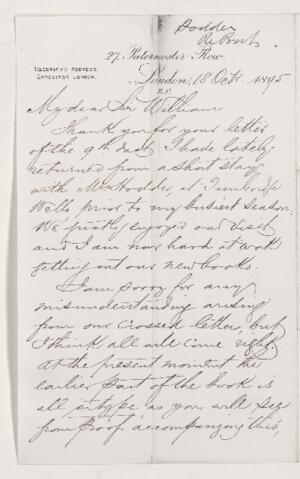 Hodder
Re Book
27, Paternoster Row,
TELEGRAPHIC ADDRESS,
EXPOSITOR LONDON.
London, 18 Oct 1895
E.C.
My dear Sir William
Thank you for your letter
of the 9th inst. I have lately
returned from a short stay
with Mrs Hodder, at Tunbridge
Wells prior to my busiest season.
We greatly enjoyed our visit
and I am now hard at work
getting out our new books.
I am sorry for any
misunderstanding arising
from our crossed letters, but
I think all will come right.
At the present moment the
earlier part of the book is
all in type as you will see
from proof accompanying this,